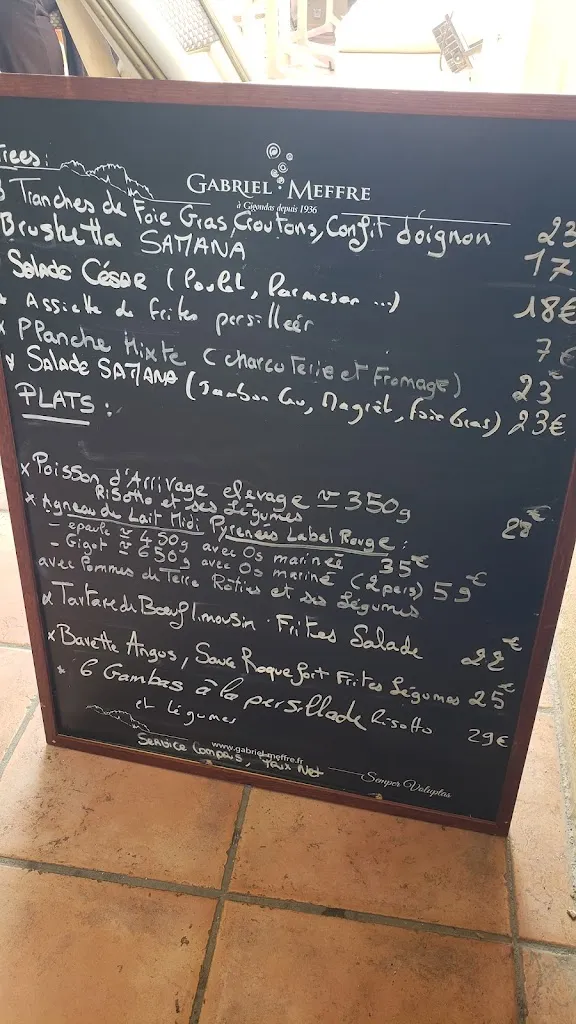 GABRIEL MEFFRE
à Gigondas depuis 1936
rees:
3 Tranches de Foie Gras, Croutons, Confit d'oignon 23
Brusketta SAMANA 17
Salade César (Poulet, Parmesan ...) 18€
Assiette de frites persillées 7€
x PPlanche Mixte (charcuterie et Fromage) 23€
Salade SAMANA (Jambon Cru, Magret, Foie Gras) 23€
PLATS:
x Poisson d'Arrivage elevage ≃ 350g
Risotto et ses Légumes 28€
x Agneau du Lait Midi Pyrenees Label Rouge:
- epaule ≃ 450g avec Os marinée 35€
- Gigot ≃ 650g avec Os mariné (2pers) 59€
avec Pommes de Terre Roties et ses Légumes
x Tartare de Boeuf limousin. Frites Salade 22€
x Bavette Angus, Sauce Roquefort Frites Légumes 25€
* 6 Gambas à la persillade Risotto
et Légumes 29€
www.gabriel-meffre.fr
Service Compris, Prix Net
Semper Voluptas